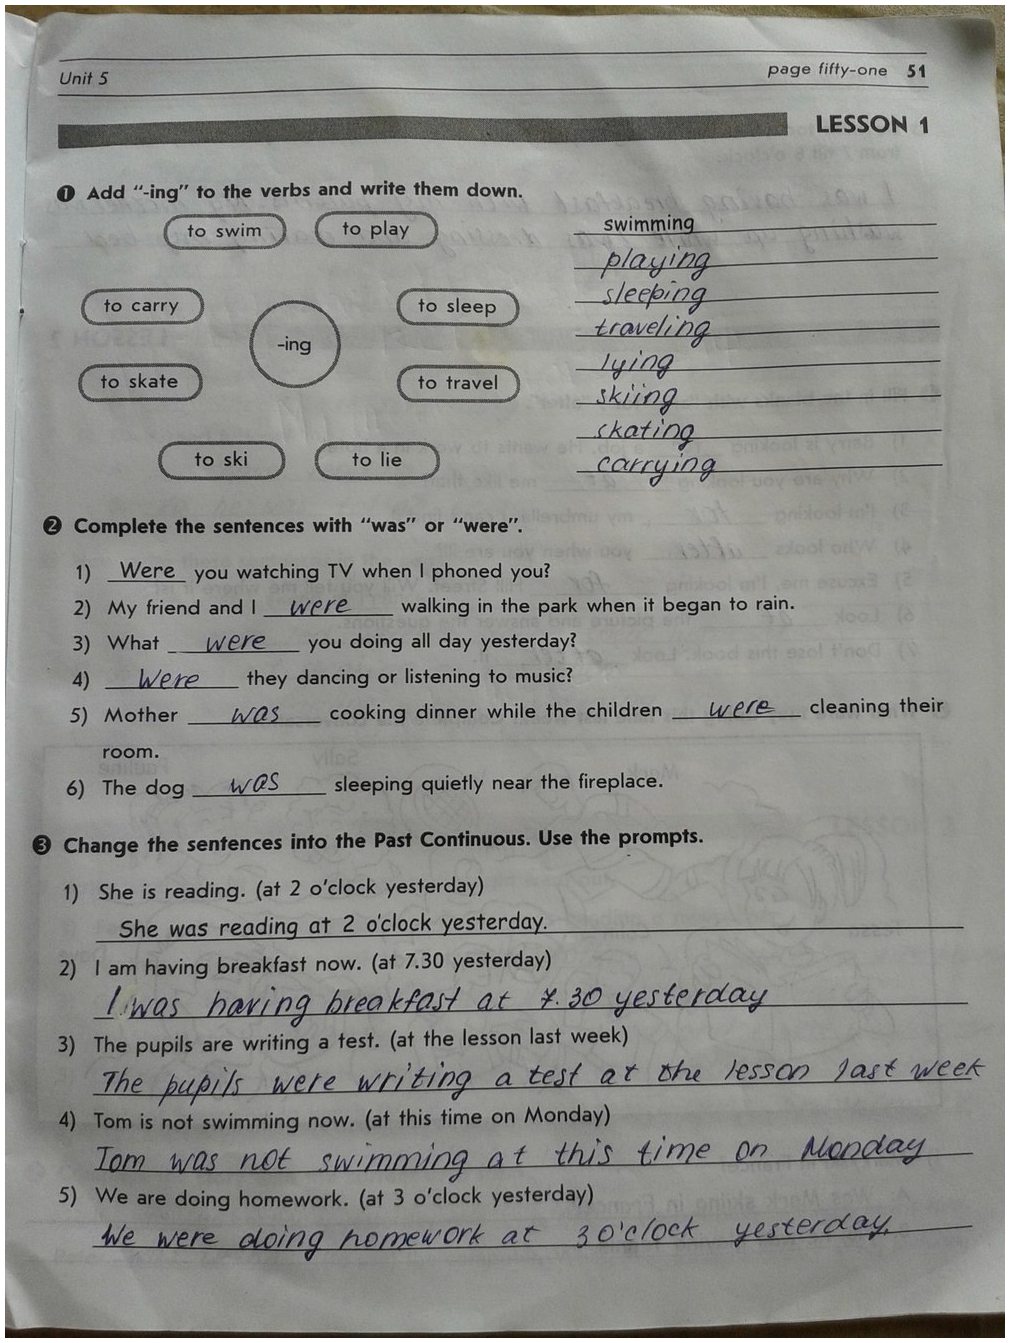 Unit 5
page fifty-one 51
LESSON 1
1 Add "-ing" to the verbs and write them down.
to swim to play
to carry to sleep
-ing
to skate to travel
to ski to lie
swimming
playing
sleeping
traveling
lying
skiing
skating
carrying
2 Complete the sentences with "was" or "were".
1) Were you watching TV when I phoned you?
2) My friend and I were walking in the park when it began to rain.
3) What were you doing all day yesterday?
4) Were they dancing or listening to music?
5) Mother was cooking dinner while the children were cleaning their
room.
6) The dog was sleeping quietly near the fireplace.
3 Change the sentences into the Past Continuous. Use the prompts.
1) She is reading. (at 2 o'clock yesterday)
She was reading at 2 o'clock yesterday.
2) I am having breakfast now. (at 7.30 yesterday)
I was having breakfast at 7.30 yesterday
3) The pupils are writing a test. (at the lesson last week)
The pupils were writing a test at the lesson last week
4) Tom is not swimming now. (at this time on Monday)
Tom was not swimming at this time on Monday
5) We are doing homework. (at 3 o'clock yesterday)
We were doing homework at 3 o'clock yesterday.